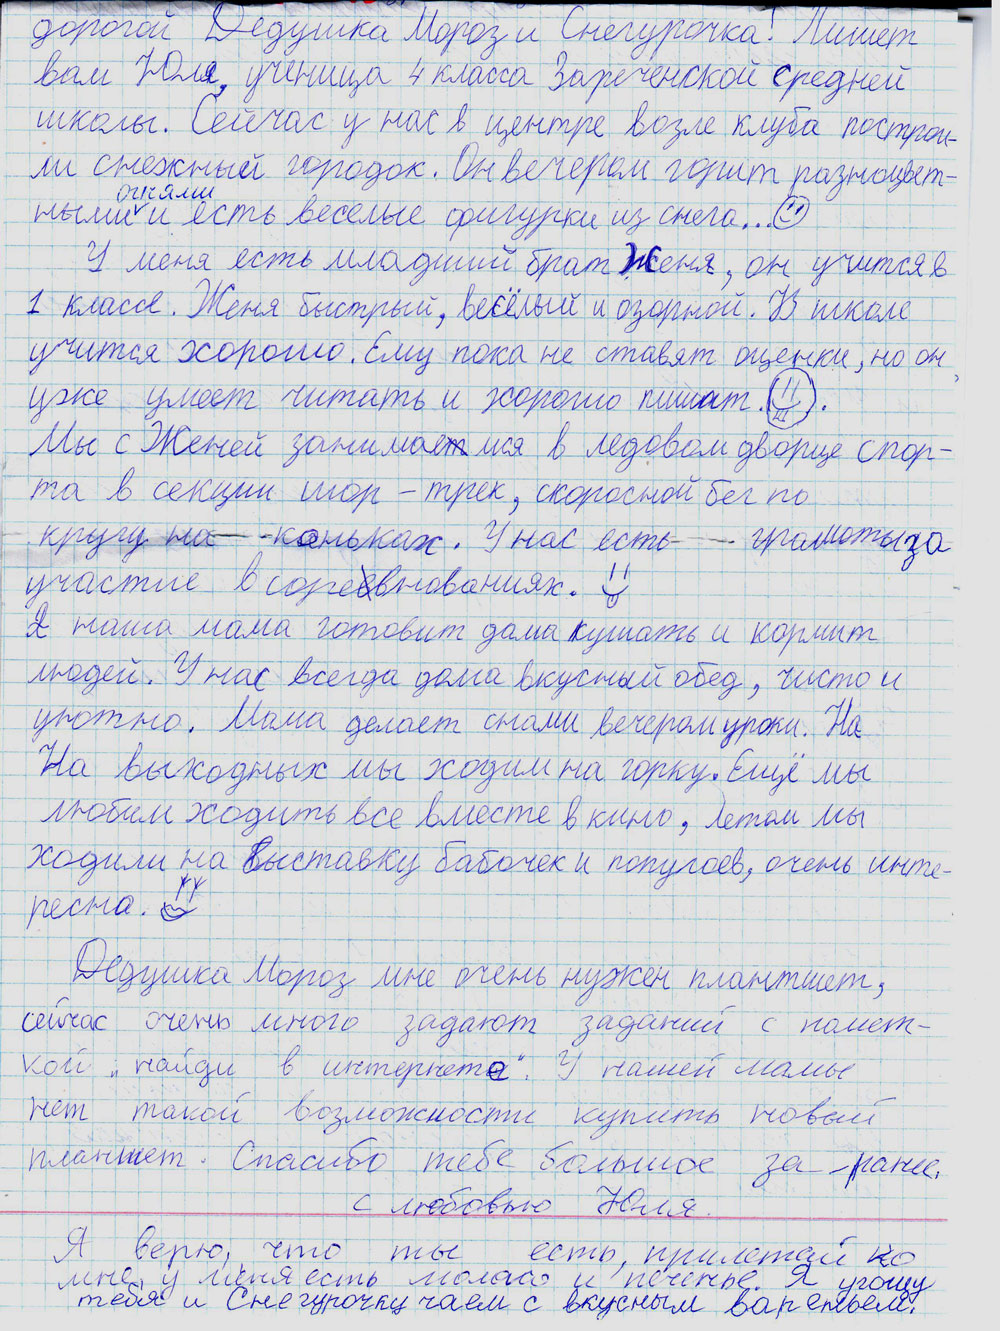 дорогой Дедушка Мороз и Снегурочка! Пишет
вам Юля, ученица 4 класса Зареченской средней
школы. Сейчас у нас в центре возле клуба построи-
ли снежный городок. Он вечером горит разноцвет-
огнями
ными и есть веселые фигурки из снега...
У меня есть младший брат Женя, он учится в
1 классе. Женя быстрый, весёлый и озорной. В школе
учится хорошо. Ему пока не ставят оценки, но он
уже умеет читать и хорошо пишат.
Мы с Женей занимаемся в ледовом дворце спор-
та в секции шор - трек, скоросной бег по
кругу на коньках. У нас есть грамоты за
участие в соревнованиях.
А наша мама готовит дома кушать и кормит
людей. У нас всегда дома вкусный обед, чисто и
уютно. Мама делает снами вечером уроки. На
На выходных мы ходим на горку. Ещё мы
любим ходить все вместе в кино, летом мы
ходили на выставку бабочек и попугаев, очень инте-
ресна.
Дедушка Мороз мне очень нужен плантшет,
сейчас очень много задают заданий с помет-
кой „найди в интернете". У нашей мамы
нет такой возможности купить новый
планшет. Спасибо тебе большое за -ранее.
с любовью Юля.
Я верю, что ты есть, прилетай ко
мне, у меня есть молоко и печенье. Я угощу
тебя и Снегурочку чаем с вкусным вареньем.